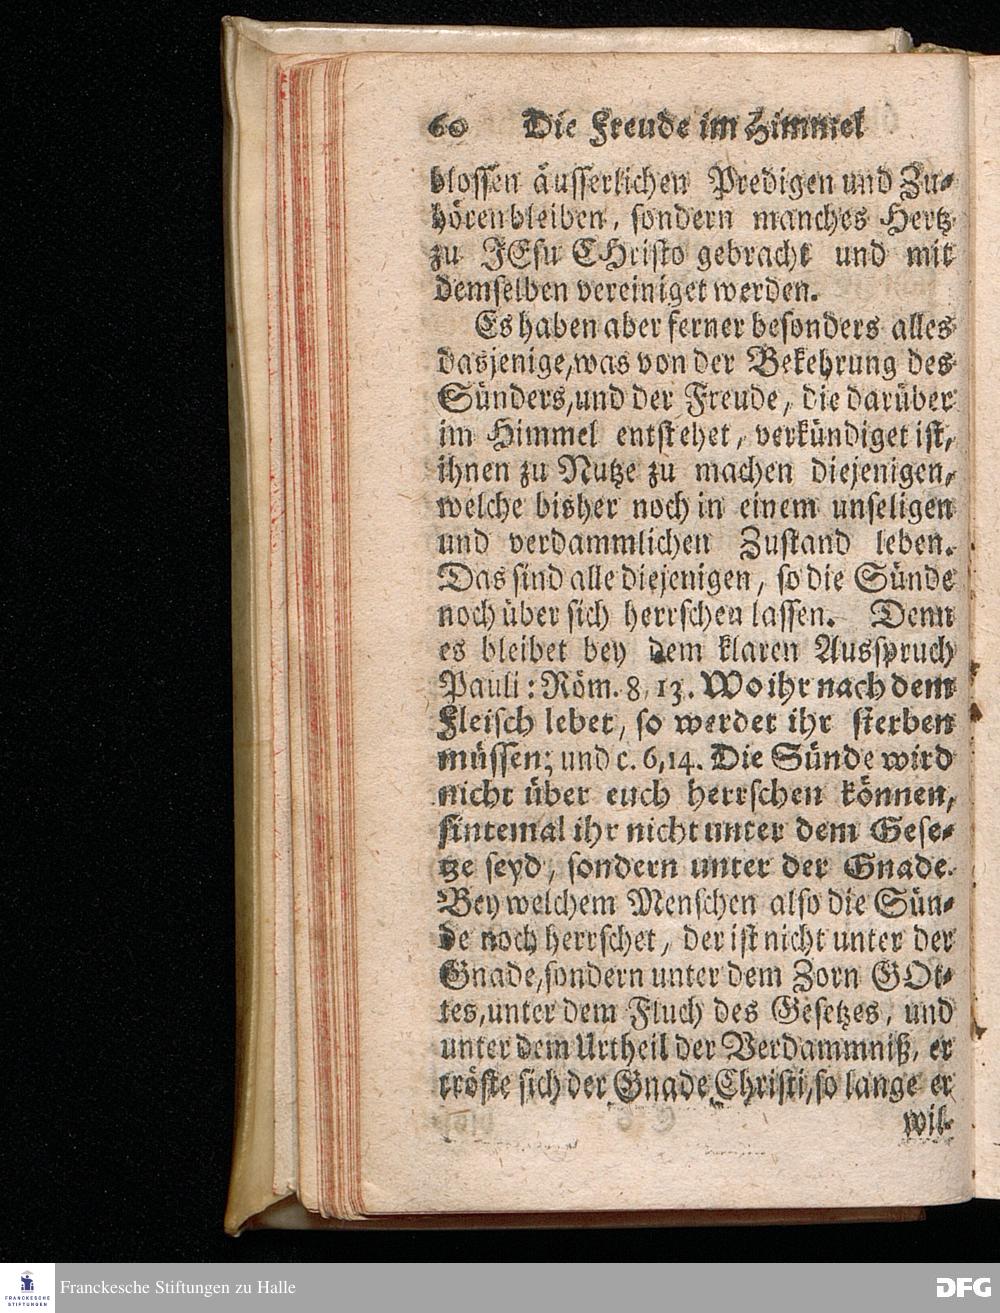 60 Die Freude im Himmel
blossen äusserlichen Predigen und Zu-
hören bleiben, sondern manches Hertz
zu JEsu CHristo gebracht und mit
demselben vereiniget werden.
Es haben aber ferner besonders alles
dasjenige, was von der Bekehrung des
Sünders, und der Freude, die darüber
im Himmel entstehet, verkündiget ist,
ihnen zu Nutze zu machen diejenigen,
welche bisher noch in einem unseligen
und verdammlichen Zustand leben.
Das sind alle diejenigen, so die Sünde
noch über sich herrschen lassen. Denn
es bleibet bey dem klaren Ausspruch
Pauli: Röm. 8, 13. Wo ihr nach dem
Fleisch lebet, so werdet ihr sterben
müssen; und c. 6, 14. Die Sünde wird
nicht über euch herrschen können,
sintemal ihr nicht unter dem Gese-
tze seyd, sondern unter der Gnade.
Bey welchem Menschen also die Sün-
de noch herrschet, der ist nicht unter der
Gnade, sondern unter dem Zorn GOt-
tes, unter dem Fluch des Gesetzes, und
unter dem Urtheil der Verdammniß, er
tröste sich der Gnade Christi, so lange er
wil-
FRANCKESCHE
STIFTUNGEN
Franckesche Stiftungen zu Halle
DFG